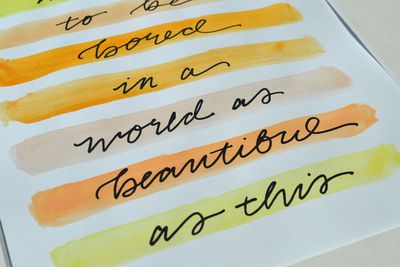 to be
bored
in a
world as
beautiful
as this